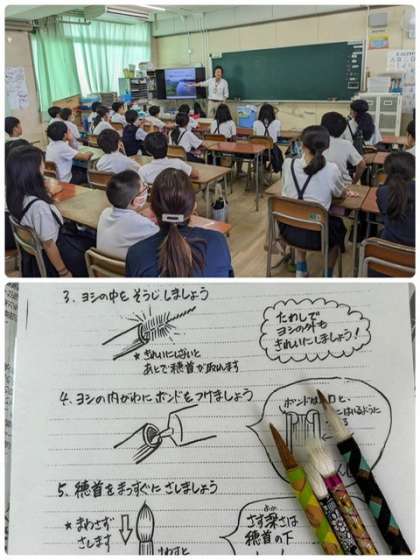 3. ヨシの中をそうじしましょう
★きれいにしないと
あとで穂首が取れます
たわしで
ヨシの外も
きれいにしましょう!
4. ヨシの内がわにボンドをつけましょう
5. 穂首をまっすぐにさしましょう
★まわさず
さします
さす深さは
穂首の下